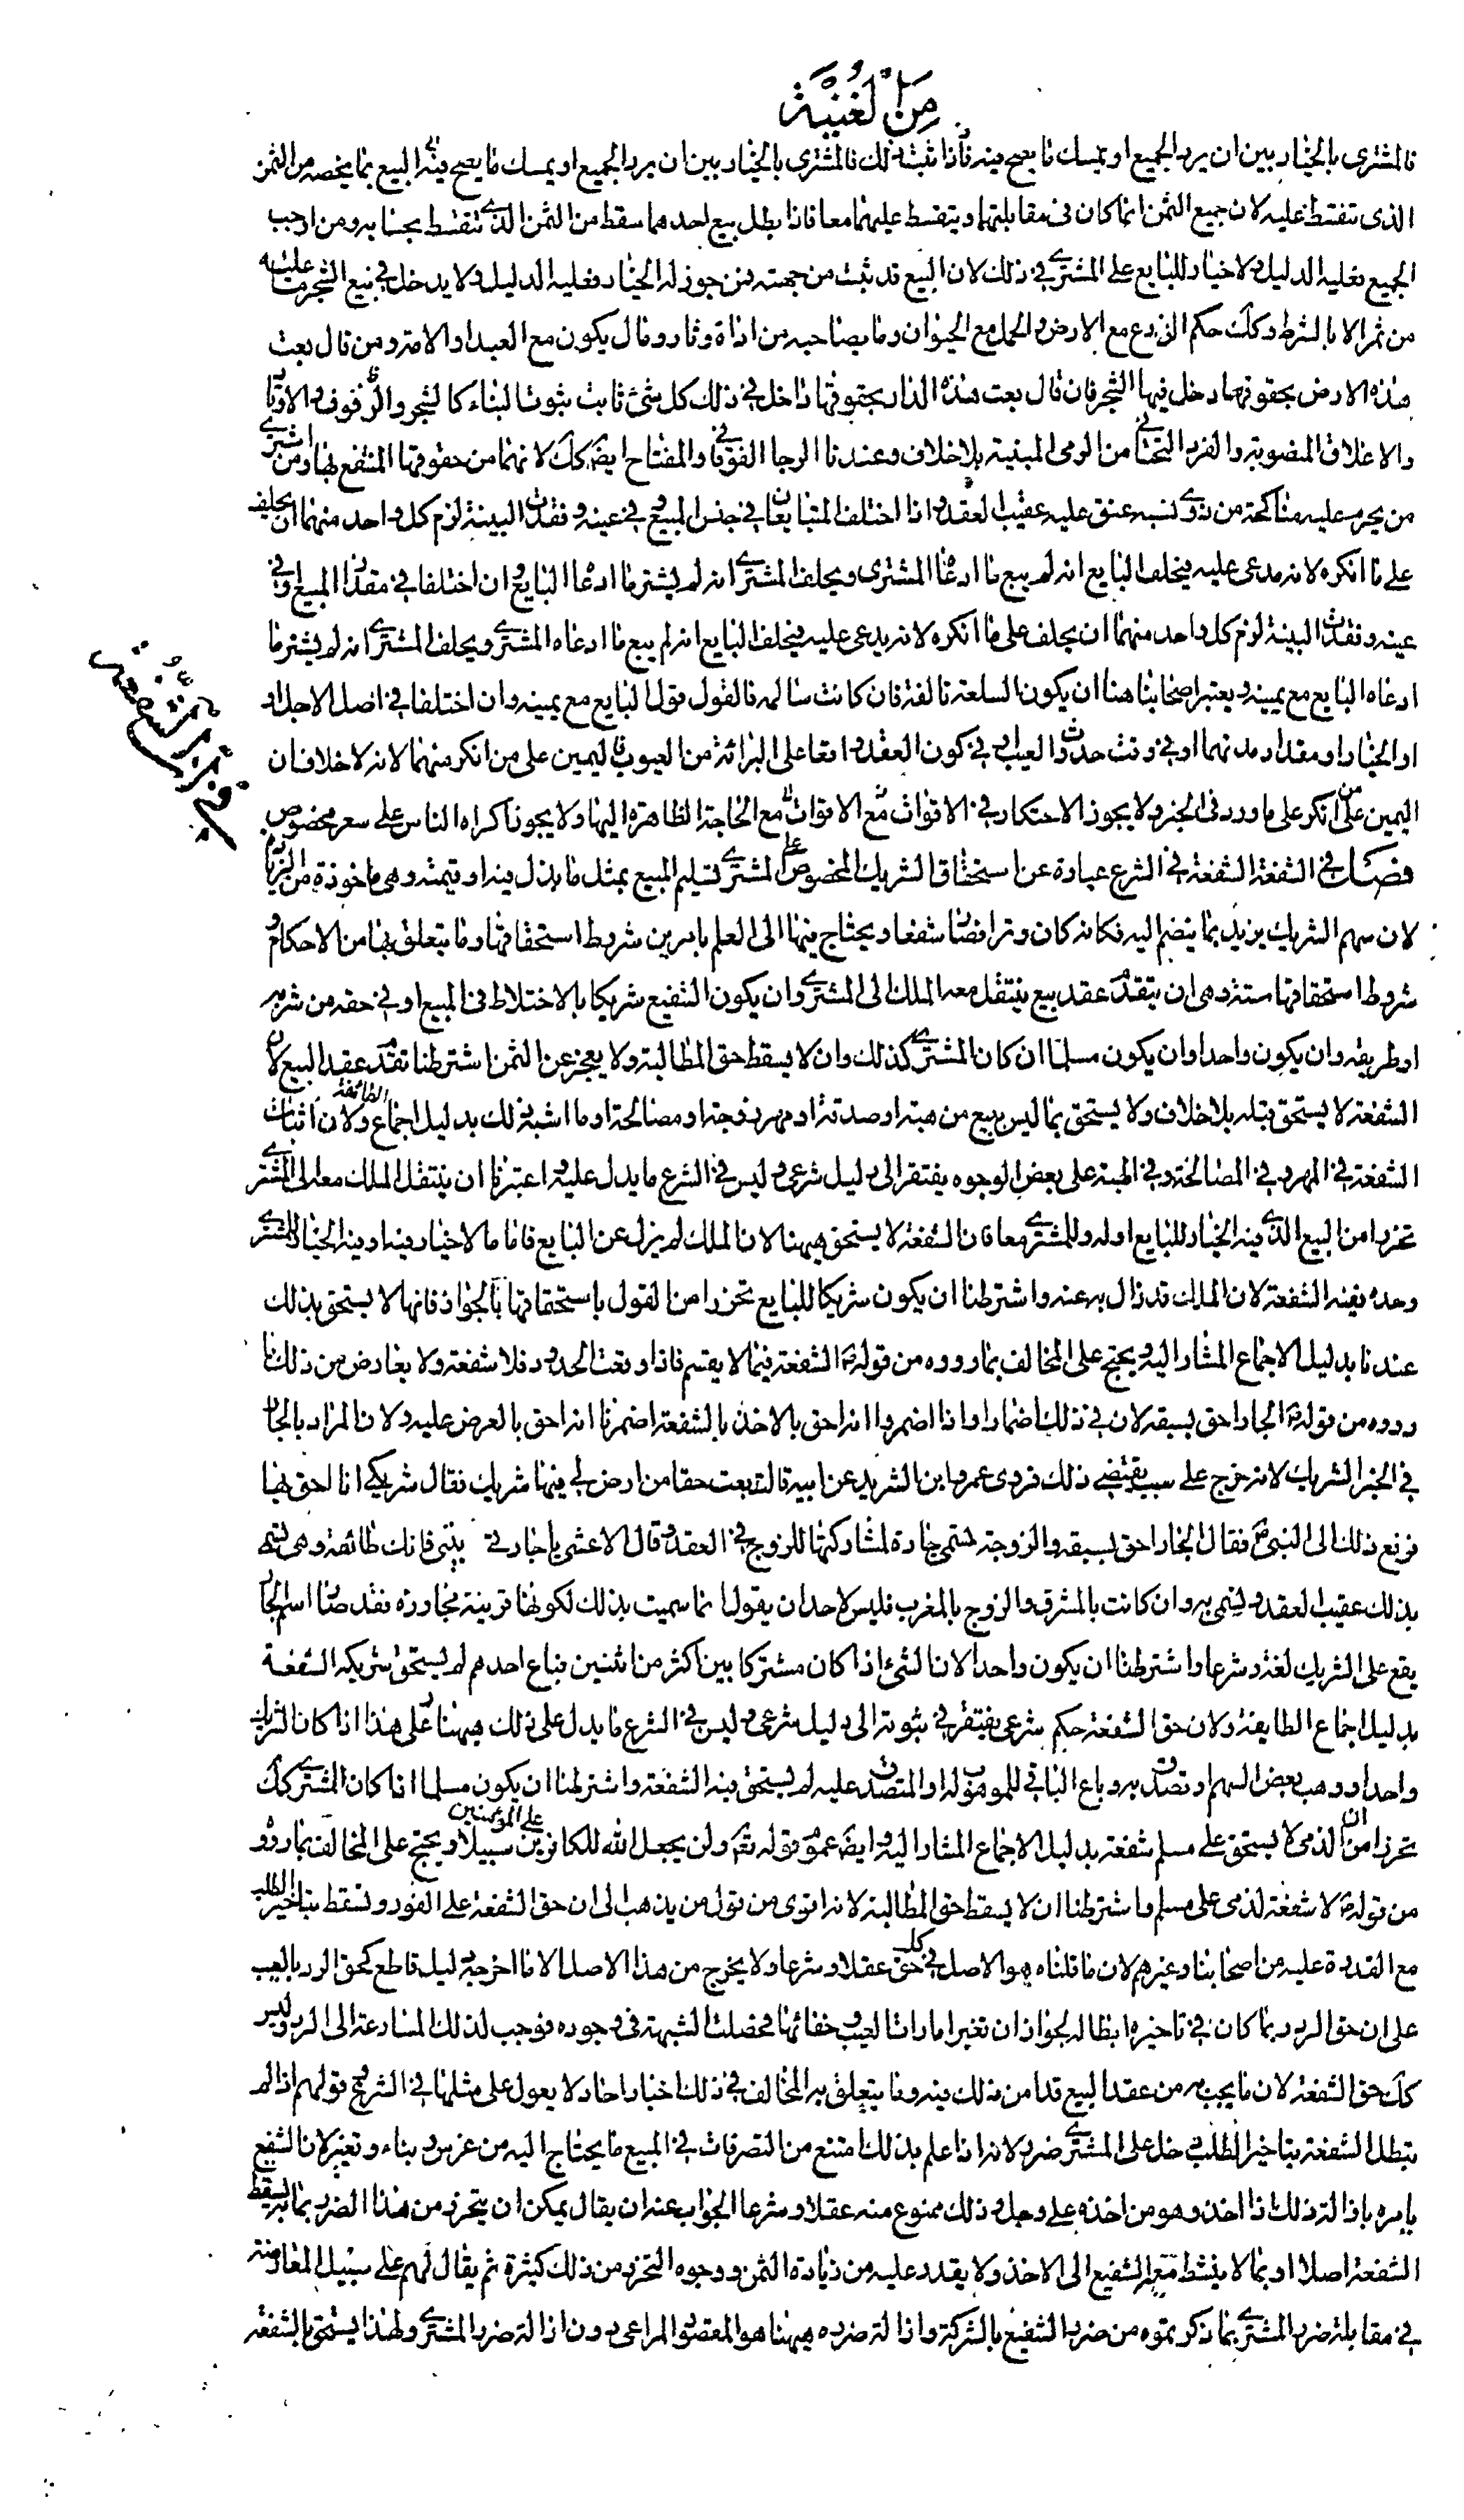 مِنَ الْغُنْيَةُ
فالمشترى بالخيار بين ان يرد الجميع او يمسك ما يصح فيه فاذا ثبت ذلك فالمشترى بالخيار بين ان يرد الجميع او يمسك ما يصح فيه البيع بما يخصه من الثمن
الذى تقسط عليه لان جميع الثمن انما كان فى مقابلتهما و يتقسط عليهما معا فاذا بطل بيع احدهما سقط من الثمن الذى تقسط بحسابه و من اوجب
الجميع فعليه الدليل و لا خيار للبايع على المشترى فى ذلك لان البيع قد ثبت من جهته فمن جوز له الخيار فعليه الدليل و لا يدخل فى بيع الشجر ما عليه
من ثمر الا بالشرط و كك حكم الزرع مع الارض و الحمل مع الحيوان و ما يصاحبه من اداة و ثار و مال يكون مع العبد او الامة و من قال بعت
هذه الارض بحقوقها دخل فيها الشجر فان قال بعت هذه الدار بحقوقها داخل فى ذلك كل شئ ثابت ثبوت البناء كالشجر و الرفوف و الاوتاد
و الاغلاق المنصوبة و الفرد التحتانى من الرحى المبنية بلا خلاف و عندنا الرحا الفوقانى و المفتاح ايضا كك لانهما من حقوقها المنتفع بها و من اشترى
من يحرم عليه مناكحته من ذوى نسبه عتق عليه عقيب العقد و اذا اختلف المتبايعان فى جنس المبيع و فى عينه و فقدت البينة لزم كل واحد منهما ان يحلف
على ما انكره لانه مدعى عليه فيحلف البايع انه لم يبع ما ادعاه المشترى و يحلف المشترى انه لم يشتر ما ادعاه البايع و ان اختلفا فى مقدار المبيع او فى
عينه و فقدت البينة لزم كل واحد منهما ان يحلف على ما انكره لانه يدعى عليه فيحلف البايع انه لم يبع ما ادعاه المشترى و يحلف المشترى انه لم يشتر ما
ادعاه البايع مع يمينه و يعتبر اصحابنا هنا ان يكون السلعة تالفة فان كانت سالمة فالقول قول البايع مع يمينه و ان اختلفا فى اصل الاجل او
او الخيار او مقدار مدتهما او فى وقت حدوث العيب او فى كون العقد واقعا على البرائة من العيوب فاليمين على من انكر منهما لانه لا خلاف ان
اليمين على من انكر على ما ورد فى الخبر و لا يجوز الاحتكار فى الاقوات مع الحاجة الظاهرة اليها و لا يجوز اكراه الناس على سعر مخصوص
فصل فى الشفعة الشفعة فى الشرع عبارة عن استحقاق الشريك المخصوص على المشترى تسليم المبيع بمثل ما بذل فيه او قيمته و هى ماخوذة من الزيادة
لان سهم الشريك يزيد بما ينضم اليه فكانه كان وترا فصار شفعا و يحتاج فيها الى العلم بامرين شروط استحقاقها و ما يتعلق بها من الاحكام و
شروط استحقاقها ستة و هى ان يتقدم عقد بيع ينتقل معه الملك الى المشترى و ان يكون الشفيع شريكا بالاختلاط فى المبيع او فى حقه من شربه
او طريقه و ان يكون واحدا و ان يكون مسلما ان كان المشترى كذلك و ان لا يسقط حق المطالبة و لا يعجز عن الثمن اشترطنا تقدم عقد البيع لان
الشفعة لا يستحق قبله بلا خلاف و لا يستحق بما ليس ببيع من هبة او صدقة او مهر زوجة او مصالحة او ما اشبه ذلك بدليل اجماع الطائفة و لان اثبات
الشفعة فى المهر و فى المصالحة و فى الهبة على بعض الوجوه يفتقر الى دليل شرعى و ليس فى الشرع ما يدل عليه و اعتبرنا ان ينتقل الملك معه الى المشترى
تحرزا من البيع الذى فيه الخيار للبايع او له و للمشترى معا فان الشفعة لا يستحق هيهنا لان الملك لم يزل عن البايع فاما ما لا خيار فيه او فيه الخيار للمشترى
وحده ففيه الشفعة لان الملك قد زال به عنه و اشترطنا ان يكون شريكا للبايع تحرزا من القول باستحقاقها بالجوار فانها لا يستحق بذلك
عندنا بدليل الاجماع المشار اليه و يحتج على المخالف بما رووه من قوله ص الشفعة فيما لا يقسم فاذا وقعت الحدود فلا شفعة و لا يعارض من ذلك بما
رووه من قوله ص الجار احق بسقبه لان فى ذلك اضمارا و اذا اضمروا انه احق بالاخذ بالشفعة اضمرنا انه احق بالعرض عليه و لان المراد بالجار
فى الخبر الشريك لانه خرج على سبب يقتضى ذلك فروى عمرو ابن الشريد عن ابيه قال بعت حقا من ارض لى فيها شريك فقال شريكى انا احق بها
فرفع ذلك الى النبى ص فقال الجار احق بسقبه و الزوجة تسمى جارة لمشاركتها للزوج فى العقد و قال الاعشى يا جارتى بينى فانك طالقة و هى تسمى
بذلك عقيب العقد و تسمى به و ان كانت بالمشرق و الزوج بالمغرب فليس لاحد ان يقول انما سميت بذلك لكونها قرينة مجاورة فقد صار اسم الجار
يقع على الشريك لغة و شرعا و اشترطنا ان يكون واحدا لان الشئ اذا كان مشتركا بين اكثر من اثنين فباع احدهم لم يستحق شريكه الشفعة
بدليل اجماع الطايفة و لان حق الشفعة حكم شرعى يفتقر فى ثبوته الى دليل شرعى و ليس فى الشرع ما يدل على ذلك هيهنا و على هذا اذا كان الشريك
واحدا و وهب بعض السهم او تصدق به و باع الباقى للموهوب له او المتصدق عليه لم يستحق فيه الشفعة و اشترطنا ان يكون مسلما اذا كان المشترى كك
تحرزا من ان الذمى لا يستحق على مسلم شفعة بدليل الاجماع المشار اليه و ايضا عموم قوله تع و لن يجعل الله للكافرين على المؤمنين سبيلا و يحتج على المخالف بما رووه
من قوله ص لا شفعة لذمى على مسلم و اشترطنا ان لا يسقط حق المطالبة لانه اقوى من قول من يذهب الى ان حق الشفعة على الفور و تسقط بتاخير الطلب
مع القدرة عليه من اصحابنا و غيرهم لان ما قلناه هو الاصل فى كل حق عقلا و شرعا و لا يخرج من هذا الاصل الا ما اخرجه دليل قاطع كحق الرد بالعيب
على ان حق الرد ربما كان فى تاخيره ابطاله لجواز ان تغير امارات العيب و خفائها فحصلت الشبهة فى وجوده فوجب لذلك المسارعة الى الرد و ليس
كك حق الشفعة لان ما يجب به من عقد البيع قد امن ذلك فيه و ما يتعلق به المخالف فى ذلك اخبار احاد لا يعول على مثلها فى الشرع و قولهم اذا لم
يبطل الشفعة بتاخير الطلب دخل على المشترى ضرر لانه اذا علم بذلك امتنع من التصرفات فى المبيع ما يحتاج اليه من غرس و بناء و تغيير لان الشفيع
يامره بازالة ذلك اذا اخذ و هو من اخذه على وجل و ذلك ممنوع منه عقلا و شرعا الجواب عنه ان يقال يمكن ان يتحرز من هذا الضرر بما يسقط
الشفعة اصلا او بما لا ينشط معه الشفيع الى الاخذ و لا يقدر عليه من زيادة الثمن و وجوه التحرز من ذلك كثيرة ثم يقال لهم على سبيل المعاوضة
فى مقابلة ضرر المشترى بما ذكرتموه من ضرر الشفيع بالشركة و ازالة ضرره هيهنا هو المقصود المراعى دون ازالة ضرر المشترى و لهذا يستحق بالشفعة